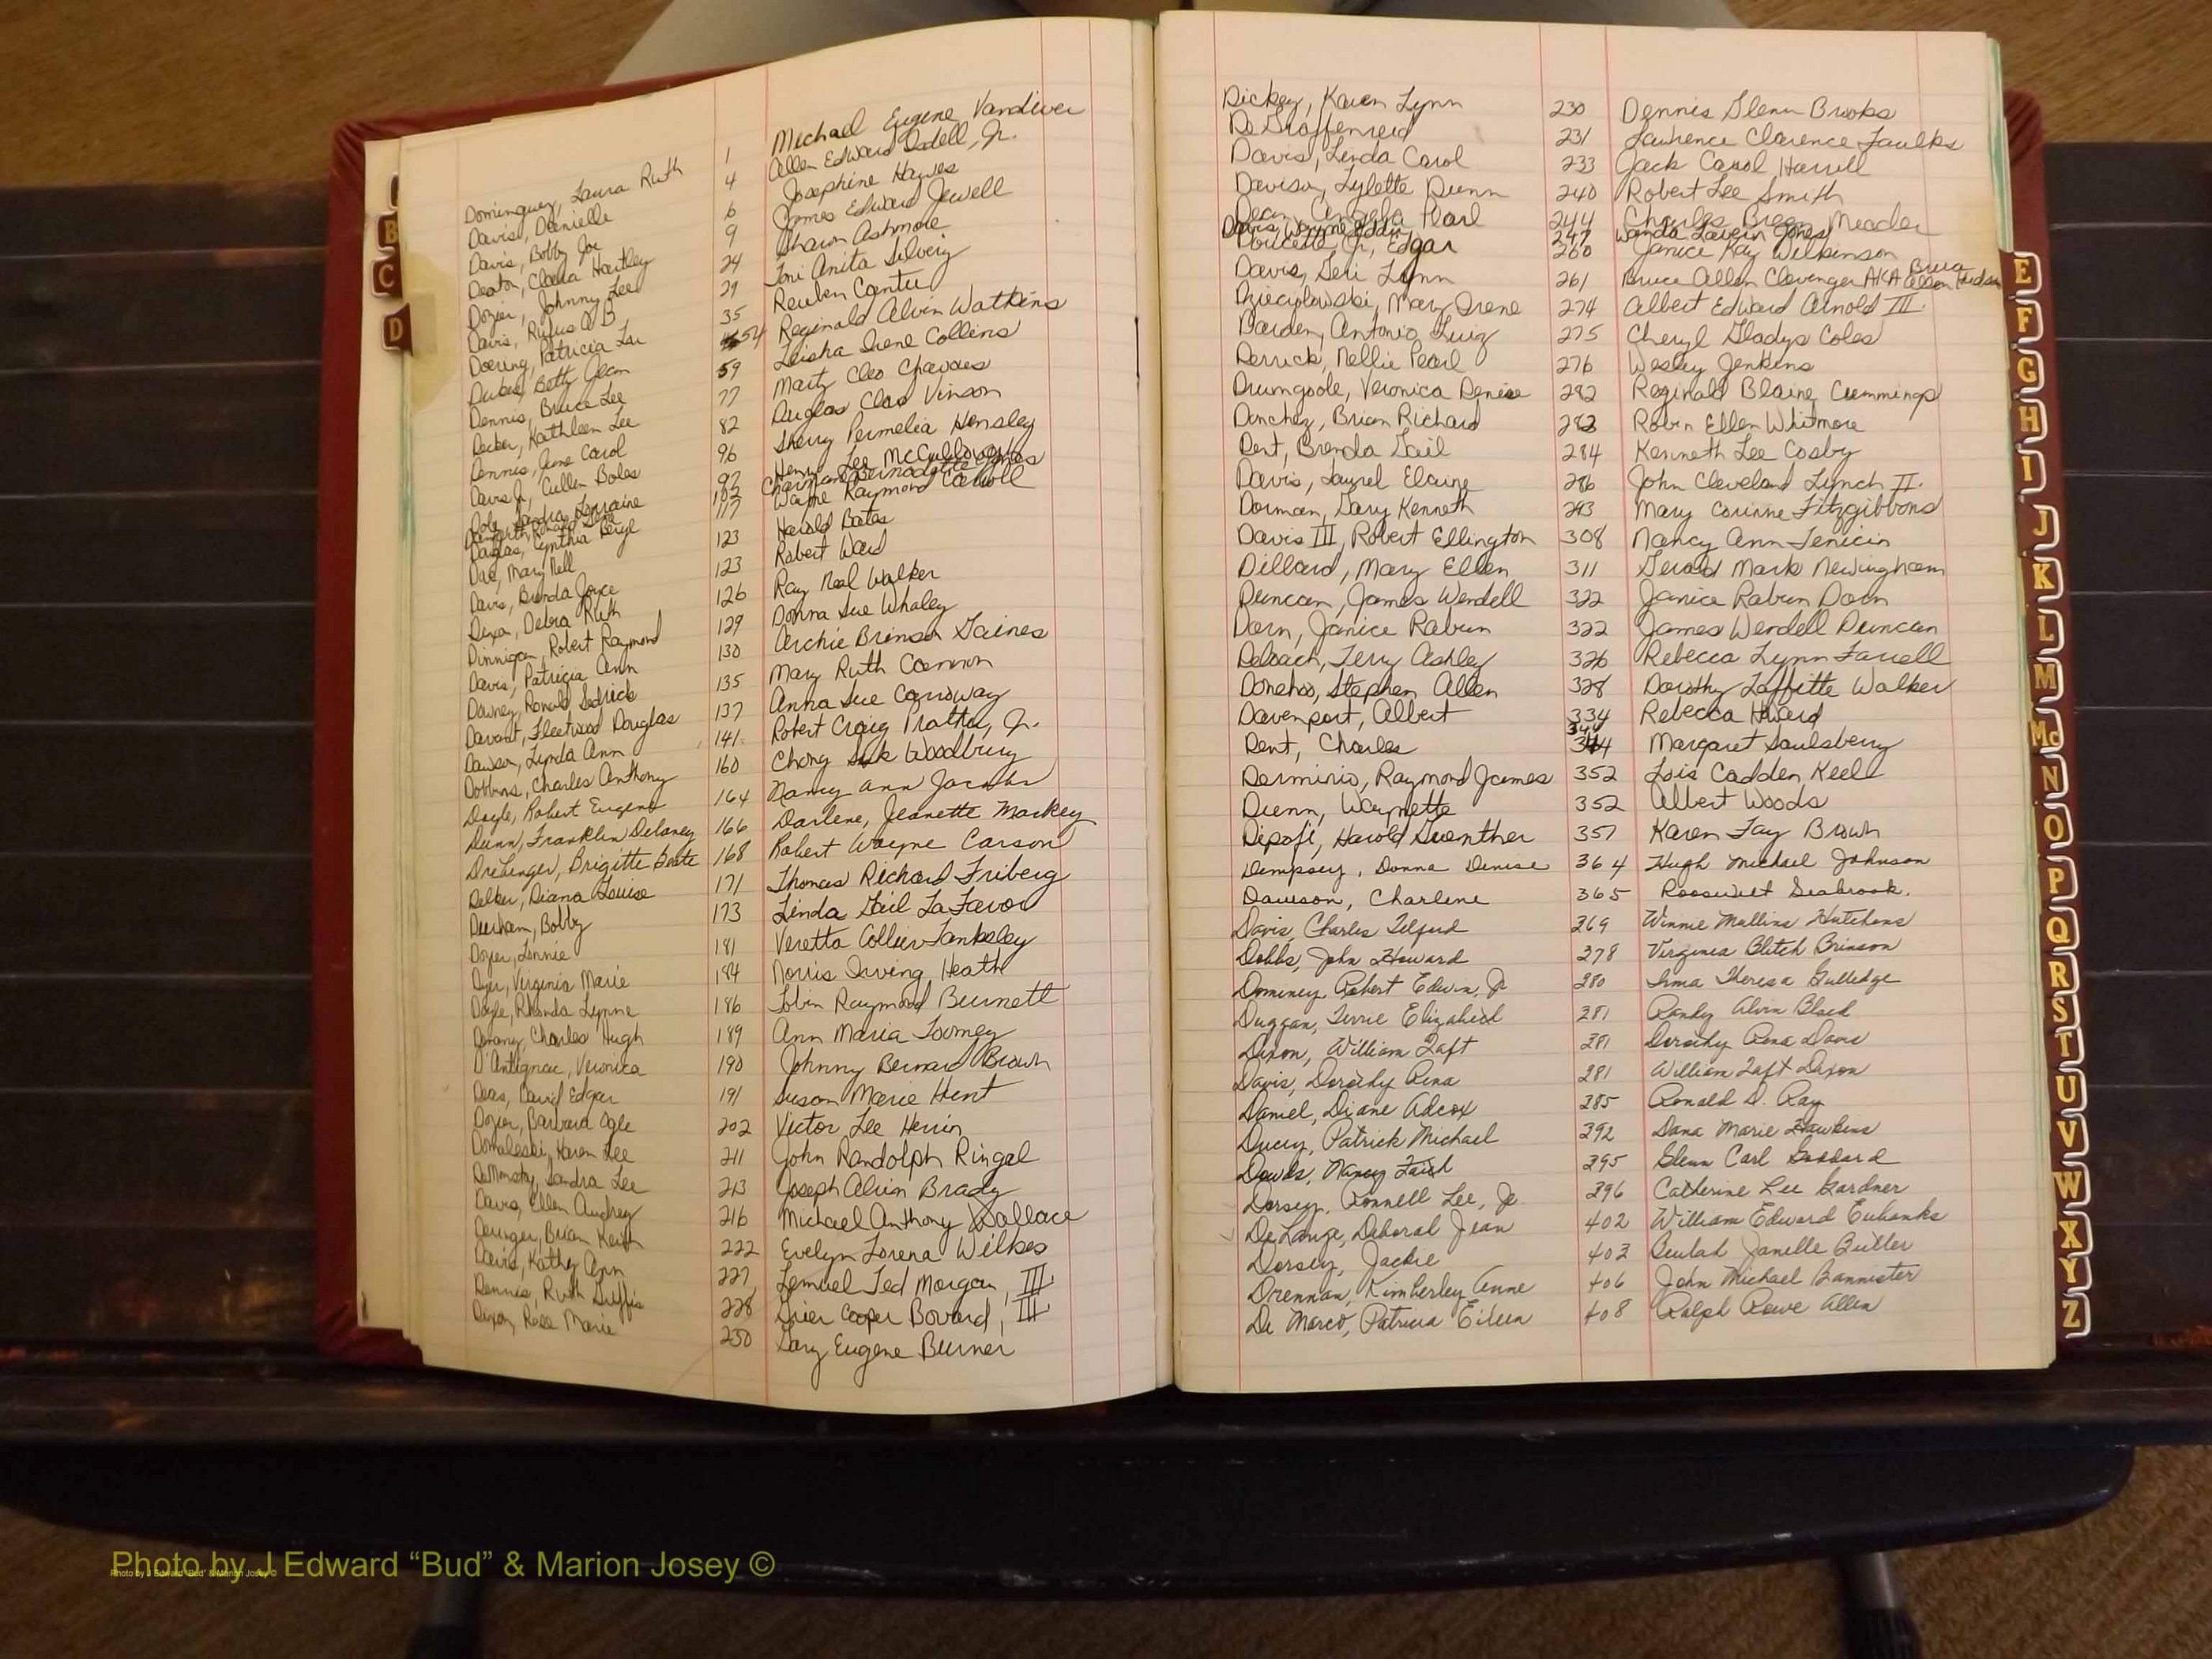 Dominguez, Laura Ruth 1 Michael Eugene Vandiver
Davis, Danielle 4 Allen Edward Isdell, Jr.
Davis, Bobby Joe 6 Josephine Hawes
Deaton, Hartley 9 James Edward Jewell
Dozier, Johnny Lee 24 Sharon Ashmore
Davis, Rufus O B 29 Toni Anita Silvery
Doering, Patricia 35 Reuben Cantu
Dukes, Betty Jean 54 Reginald Alvin Watkins
Dennis, Bruce Lee 59 Leisha Irene Collins
Decker, Kathleen Lee 77 Martz Cleo Chavous
Dennis, June Carol 82 Duglas Clas Vinson
Davis Jr., Cullen Boles 96 Sherry Permelia Hensley
Dole, Sandra Lorraine 97 Henry Lee McCullough
Danforth, Ronald 102 Charmane Bernadette Jones
Douglas, Cynthia Beryl 117 Wayne Raymond Carroll
Mary Nell 123 Harold Bates
Davis, Brenda Joyce 123 Robert Ward
Dixon, Debra Ruth 126 Ray Neal Walker
Dinnigan, Robert Raymond 129 Donna Sue Whaley
Davis, Patricia Ann 130 Archie Brinson Gaines
Downey, Ronald Sedrick 135 Mary Ruth Cannon
Davant, Fleetwood Douglas 137 Anna Sue Carroway
Dawson, Lynda Ann 141 Robert Craig Prather, Jr.
Dobbins, Charles Anthony 160 Chong Suk Woodbury
Doyle, Robert Eugene 164 Nancy Ann Jacobs
Dunn, Franklin Delaney 166 Darlene, Jeanette Markey
Drehinger, Brigitte Beate 168 Robert Wayne Carson
Delker, Diana Louise 171 Thomas Richard Friberg
Durham, Bobby 173 Linda Gail LaFavor
Dozier, Lonnie 181 Veretta Collier Tanksley
Dyer, Virginia Marie 184 Norris Irving Heath
Doyle, Rhonda Lynne 186 Tobin Raymond Burnett
Charles Hugh 189 Ann Maria Toomey
D'Antignac, Veronica 190 Johnny Bernard Brown
Deas, David Edgar 191 Susan Marie Hunt
Dozier, Barbara Ogle 202 Victor Lee Herrin
Domaleski, Karen Lee 211 John Randolph Ringel
Sandra Lee 213 Joseph Alvin Brady
Davis, Ellen Audrey 216 Michael Anthony Wallace
Deringer, Brian Keith 222 Evelyn Lorena Wilkes
Davis, Kathy Ann 227 Lemuel Ted Morgan, III
Dennis, Ruth Griffis 228 Grier Cooper Bovard, III
Dixon, Rose Marie 230 Gary Eugene Burner
Dickey, Karen Lynn 230 Dennis Glenn Brooks
DeGraffenreid 231 Lawrence Clarence Faulks
Davis, Linda Carol 233 Jack Carol Harrell
Davison, Lylette Dunn 240 Robert Lee Smith
Dean, Angela Pearl 244 Charles Meader
Davis, Wayne Eddie 247 Wanda Jones
Doucette, Jr., Edgar 260 Janice Kay Wilkinson
Davis, Geri Lynn 261 Bruce Allen Clevenger AKA Bruce Allen Hudson
Dzieciolowski, Mary Irene 274 Albert Edward Arnold III.
Darden, Antonio Luiz 275 Cheryl Gladys Coles
Derrick, Nellie Pearl 276 Wesley Jenkins
Drumgoole, Veronica Denise 282 Reginald Blaine Cummings
Donchez, Brian Richard 283 Robin Ellen Whitmore
Dent, Brenda Gail 284 Kenneth Lee Cosby
Davis, Laurel Elaine 286 John Cleveland Lynch II.
Dorman, Gary Kenneth 293 Mary Corinne Fitzgibbons
Davis III, Robert Ellington 308 Nancy Ann Tenicin
Dillard, Mary Ellen 311 Gerald Mark Newingham
Duncan, James Wendell 322 Janice Rabun Dorn
Dorn, Janice Rabun 322 James Wendell Duncan
Deloach, Terry Ashley 326 Rebecca Lynn Farrell
Donehoo, Stephen Allen 328 Dorothy Laffitte Walker
Davenport, Albert 334 Rebecca Howard
Dent, Charles 344 Margaret Saulsberry
Derminio, Raymond James 352 Lois Cadden Keel
Dunn, Waynette 352 Albert Woods
Dipofi, Harold Guenther 357 Karen Fay Brown
Dempsey, Donna Denise 364 Hugh Michael Johnson
Dawson, Charlene 365 Roosevelt Seabrook.
Davis, Charles Telford 369 Winnie Mullins Hutchens
Dobbs, John Howard 378 Virginia Blitch Brinson
Dominey, Robert Edwin, Jr 380 Irma Theresa Gulledge
Duggan, Terrie Elizabeth 381 Randy Alvin Black
Dixon, William Taft 381 Dorothy Rena Davis
Davis, Dorothy Rena 381 William Taft Dixon
Daniel, Diane Adcox 385 Ronald D. Ray
Ducey, Patrick Michael 392 Dana Marie Hawkins
Dowds, Nancy Faith 395 Glenn Carl Goddard
Dorsey, Ronnell Lee, Jr 396 Catherine Lee Gardner
DeLange, Deborah Jean 402 William Edward Eubanks
Dorsey, Jackie 403 Beulah Janelle Butler
Drennan, Kimberley Anne 406 John Michael Bannister
De Marco, Patricia Eileen 408 Ralph Rowe Allen
B
C
D
E
F
G
H
I
J
K
L
M
Mc
N
O
P
Q
R
S
T
U
V
W
X
Y
Z
Photo by J Edward “Bud” & Marion Josey ©
Photo by J Edward “Bud” & Marion Josey ©